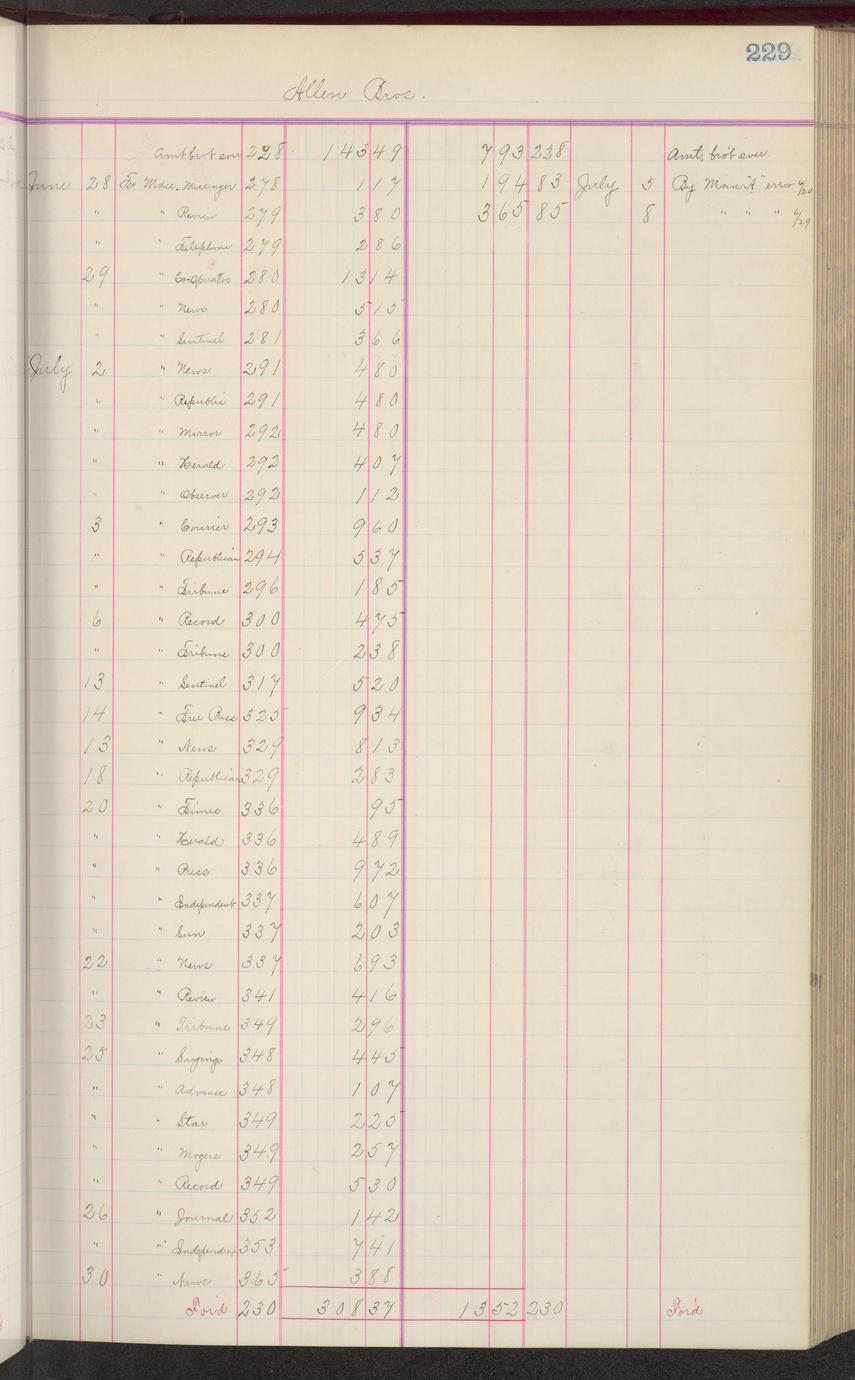 229
Allen Bros.
Amt brot over 228 143 49 7 93 228 Amt, bro't over.
June 28 To Mdse. Messenger 278 1 17 1 94 83 July 5 By Man "A" error 6/20
" " Review 279 3 80 3 65 85 8 " " " 6/29
" " Telephone 279 2 86
29 " Co-Operator 280 13 14
" " News 280 5 15
" " Sentinel 281 3 66
July 2 " News 291 4 80
" " Republic 291 4 80
" " Mirror 292 4 80
" " Herald 292 4 07
" " Observer 292 1 12
3 " Courier 293 9 60
" " Republican 294 5 37
" " Tribune 296 1 85
6 " Record 300 4 75
" " Tribune 300 2 38
13 " Sentinel 317 5 20
14 " Free Press 325 9 34
13 " News 329 8 13
18 " Republican 329 2 83
20 " Times 336 95
" " Herald 336 4 89
" " Press 336 9 72
" " Independent 337 6 07
" " Sun 337 2 03
22 " News 337 6 93
" " Review 341 4 16
23 " Tribune 349 2 96
25 " Sayings 348 4 45
" " Advance 348 1 07
" " Star 349 2 25
" " Mogers 349 2 57
" " Record 349 5 30
26 " Journal 352 1 42
" " Independent 353 7 41
30 " News 365 3 88
For'd 230 308 37 13 52 230 For'd